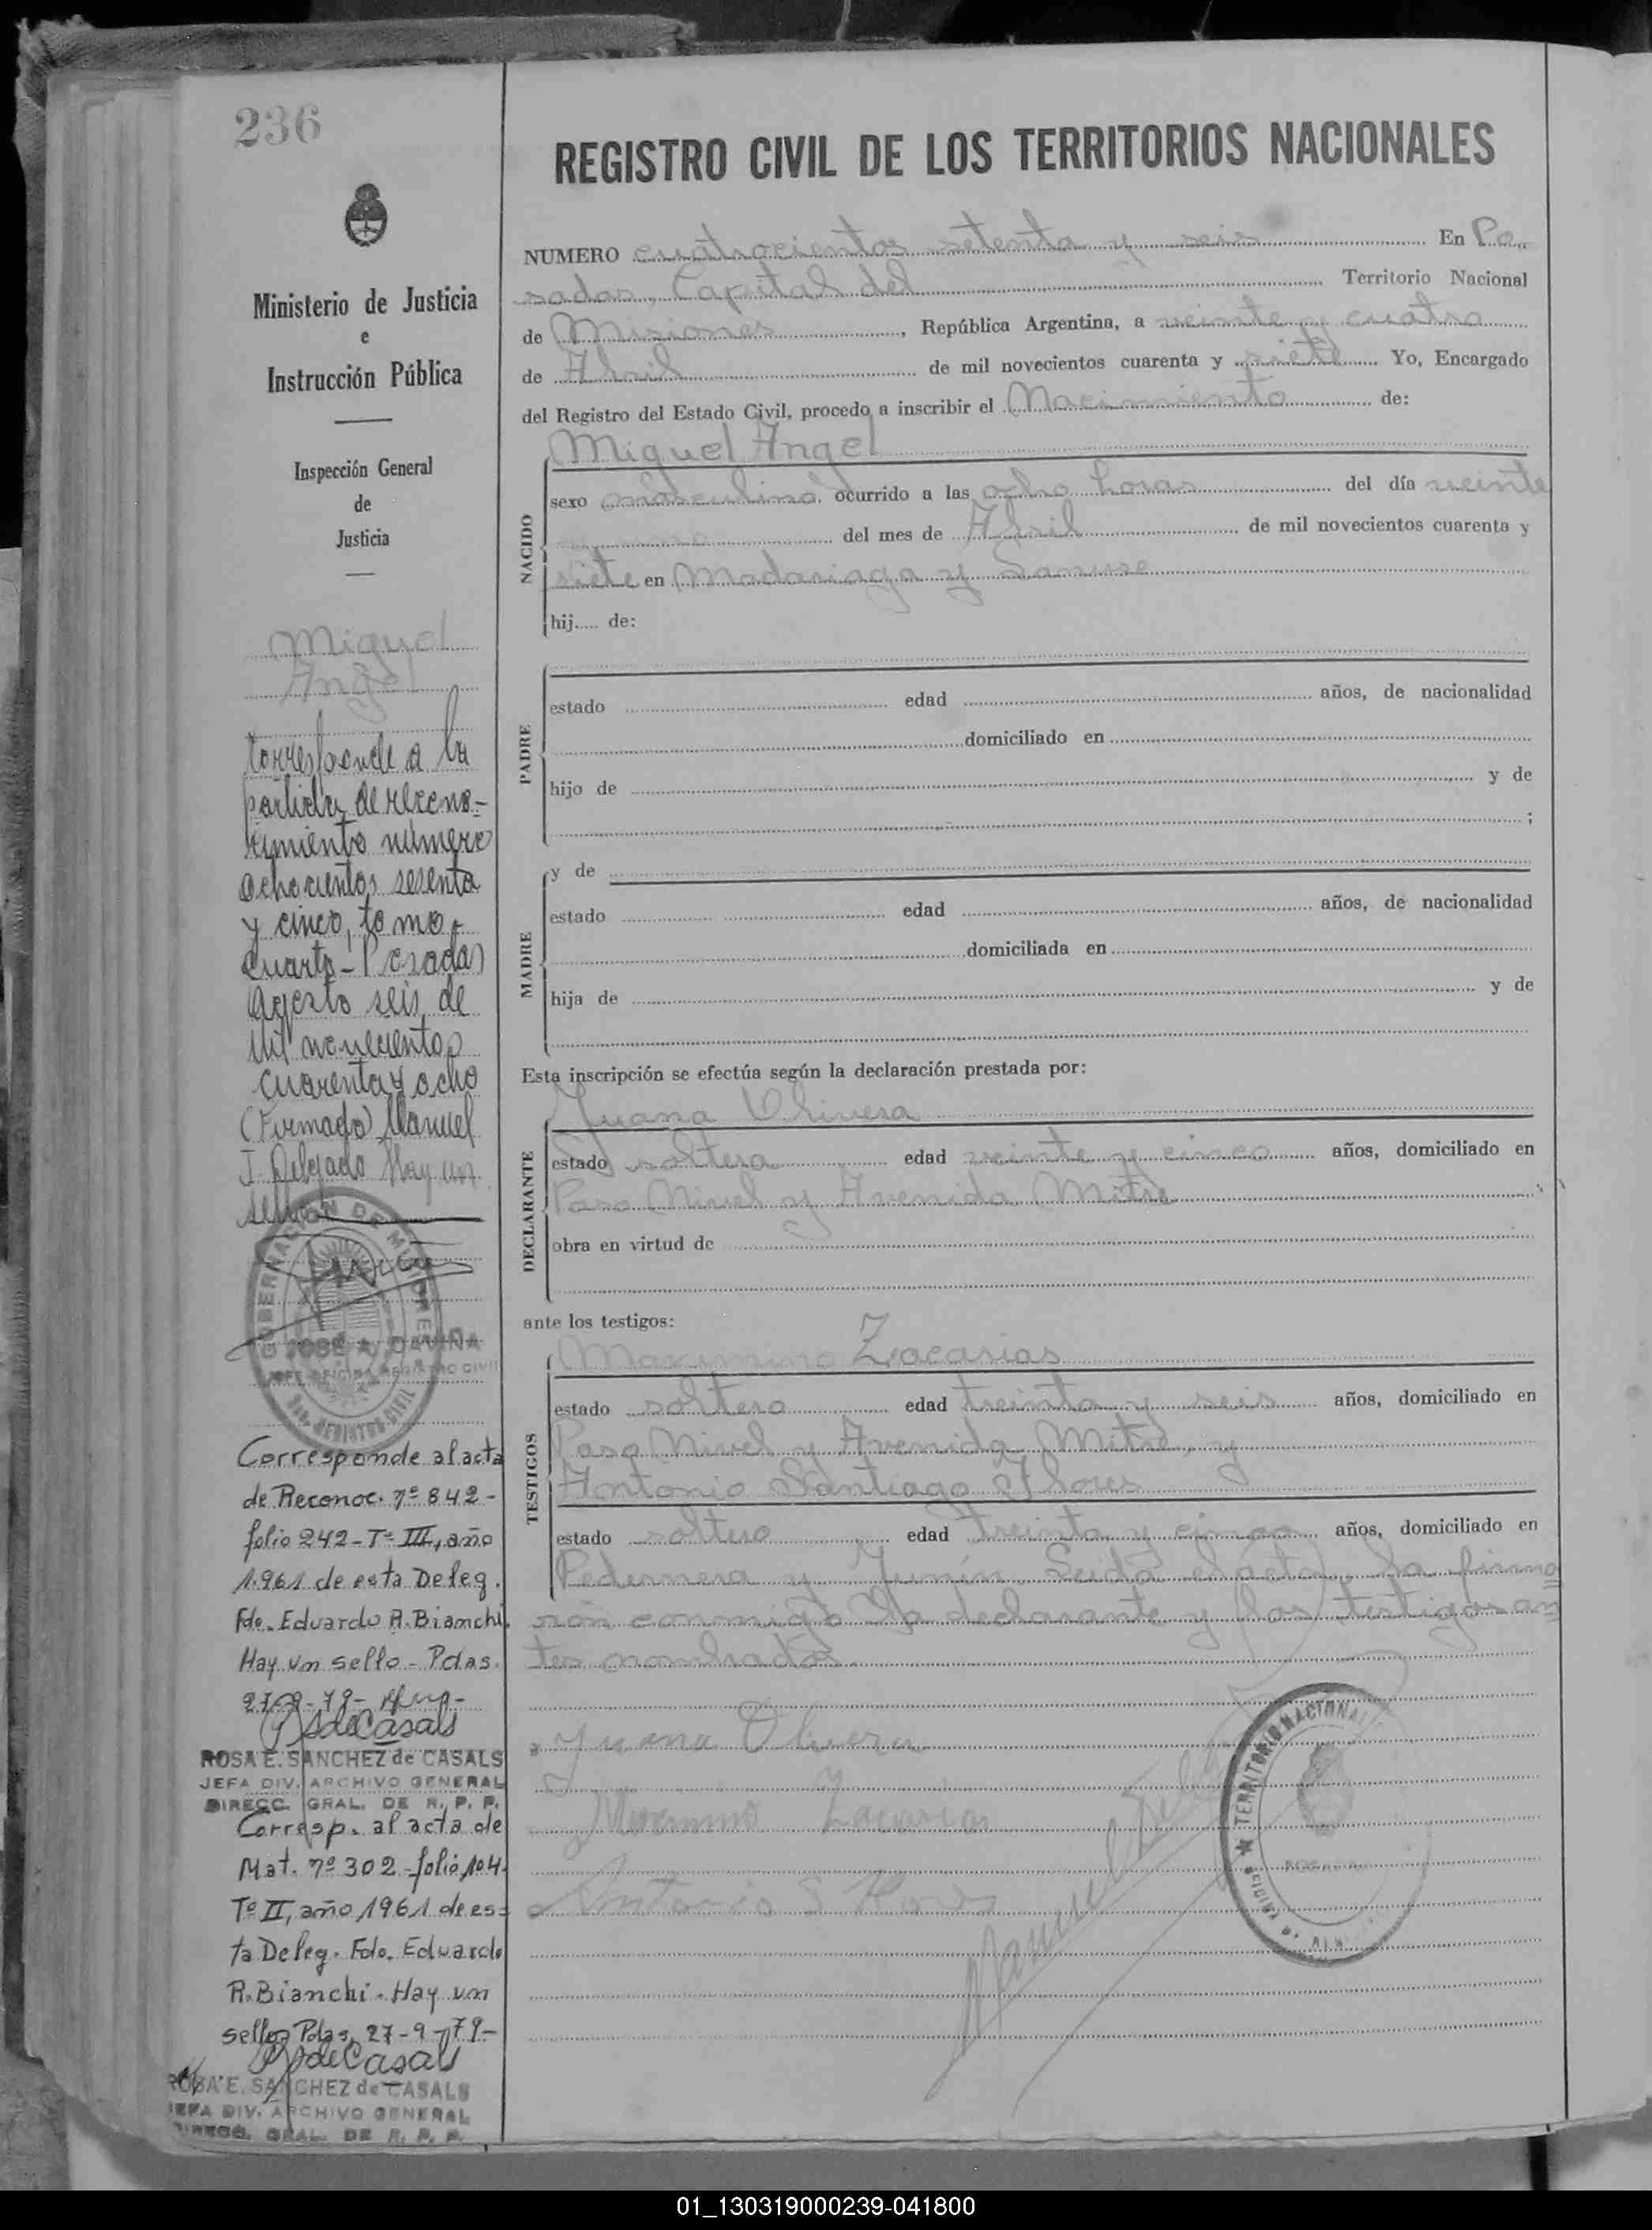 236
Ministerio de Justicia
e
Instrucción Pública
Inspección General
de
Justicia
Miguel
Angel
Corresponde a la
partida de recono-
cimiento número
ochocientos sesenta
y cinco, tomo
cuarto - Posadas
Agosto seis de
mil novecientos
cuarenta y ocho
(Firmado) Manuel
J. Delgado Hay un
sello
GOBERNACION DE MISIONES
JOSÉ A. DAVIÑA
JEFE OFICINA REGISTRO CIVIL
REGISTRO CIVIL
Corresponde al acta
de Reconoc. nº 842-
folio 242-Tº III, año
1.961 de esta Deleg.
Fdo. Eduardo R. Bianchi.
Hay un sello - Pdas.
27-9-79-
RSdeCasals
ROSA E. SANCHEZ de CASALS
JEFA DIV. ARCHIVO GENERAL
DIRECC. GRAL. DE R. P. P.
Corresp. al acta de
Mat. nº 302-folio 104.
Tº II, año 1961 de es-
ta Deleg. Fdo. Eduardo
R. Bianchi. Hay un
sello Pdas, 27-9-79-
RSdeCasals
ROSA E. SANCHEZ de CASALS
JEFA DIV. ARCHIVO GENERAL
DIRECC. GRAL. DE R. P. P.
REGISTRO CIVIL DE LOS TERRITORIOS NACIONALES
NUMERO cuatrocientos setenta y seis En Po-
sadas, Capital del Territorio Nacional
de Misiones, República Argentina, a veinte y cuatro
de Abril de mil novecientos cuarenta y siete Yo, Encargado
del Registro del Estado Civil, procedo a inscribir el Nacimiento de:
Miguel Angel
NACIDO
sexo masculino ocurrido a las ocho horas del día veinte
del mes de Abril de mil novecientos cuarenta y
siete en Madariaga y
hij..... de:
PADRE
estado edad años, de nacionalidad
domiciliado en
hijo de y de
;
MADRE
y de
estado edad años, de nacionalidad
domiciliada en
hija de y de
Esta inscripción se efectúa según la declaración prestada por:
Juana Olivera
DECLARANTE
estado soltera edad veinte y cinco años, domiciliado en
Paso Nivel y Avenida Mitre
obra en virtud de
ante los testigos:
TESTIGOS
Maximino Zacarias
estado soltero edad treinta y seis años, domiciliado en
Paso Nivel y Avenida Mitre, y
Antonio Santiago Flores
estado soltero edad treinta y cinco años, domiciliado en
Pedernera y Junín. Leida el acta, la firma
rón conmigo la declarante y los testigos an
tes nombrados.
Juana Olivera
Maximino Zacarias
Antonio S Flores
Manuel J Delgado
TERRITORIO NACIONAL
01_130319000239-041800